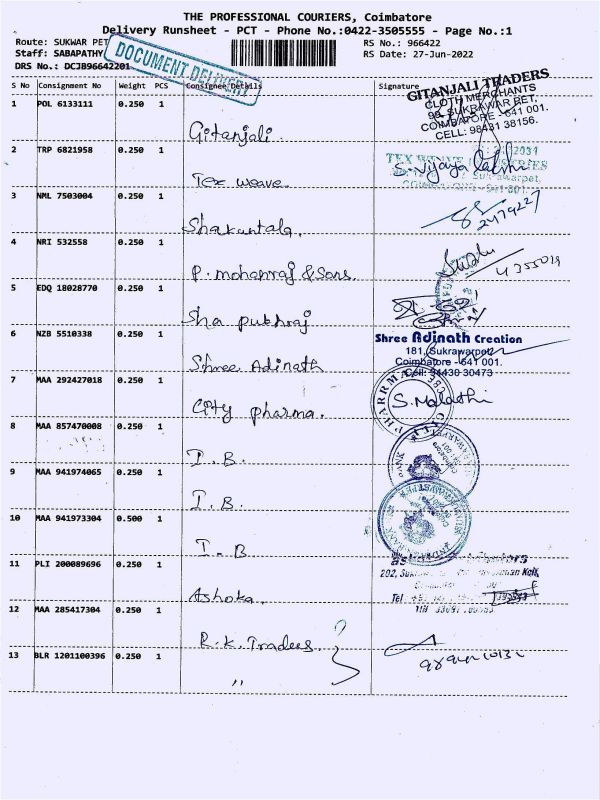 THE PROFESSIONAL COURIERS, Coimbatore
Delivery Runsheet - PCT - Phone No.:0422-3505555 - Page No.:1
Route: SUKWAR PET RS No.: 966422
Staff: SABAPATHY RS Date: 27-Jun-2022
DRS No.: DCJB96642201
DOCUMENT DELIVERY
S No Consignment No Weight PCS Consignee Details Signature
1 POL 6133111 0.250 1 Gitanjali
GITANJALI TRADERS
CLOTH MERCHANTS
99, SUKRAWAR PET,
COIMBATORE - 641 001.
CELL: 98431 38156.
2 TRP 6821958 0.250 1 Tex weave
S. Vijaya Lakshmi
3 NML 7503004 0.250 1 Shakuntala.
2479227
4 NRI 532558 0.250 1 P. mohanraj & Sons.
5 EDQ 18028770 0.250 1 Sha pukhraj
6 NZB 5510338 0.250 1 Shree Adinath
Shree Adinath Creation
181, Sukrawarpet
Coimbatore - 641 001.
Cell: 94430 30473
7 MAA 292427018 0.250 1 City pharma.
S. Malathi
8 MAA 857470008 0.250 1 I. B.
9 MAA 941974065 0.250 1 I. B.
10 MAA 941973304 0.500 1 I. B
11 PLI 200089696 0.250 1 Ashoka.
12 MAA 285417304 0.250 1 R. K. Traders.
13 BLR 1201100396 0.250 1 "